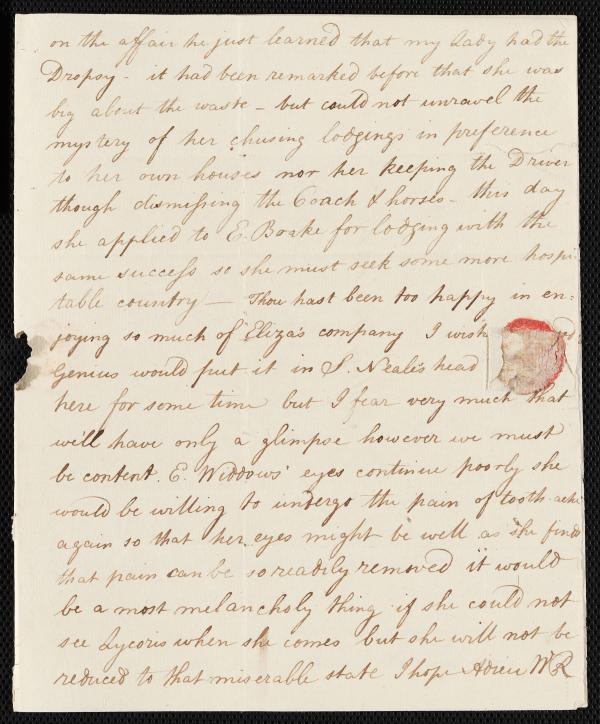 on the affair he just learned that my Lady had the
Dropsy - it had been remarked before that she was
big about the waste - but could not unravel the
mystery of her chusing lodgings in preference
to her own houses nor her keeping the Driver
though dismissing the Coach & horses - this day
she applied to E. Boake for lodging with the
same success so she must seek some more hospi-
table country - Thou hast been too happy in en=
joying so much of Eliza's company I wish
Genius would put it in S. Neale's head
here for some time but I fear very much that
we'll have only a glimpse however we must
be content. E. Widdows' eyes continue poorly she
would be willing to undergo the pain of tooth-ache
again so that her eyes might be well as she finds
that pain can be so readily removed it would
be a most melancholy thing if she could not
see Lycoris when she comes but she will not be
reduced to that miserable state I hope Adieu WR